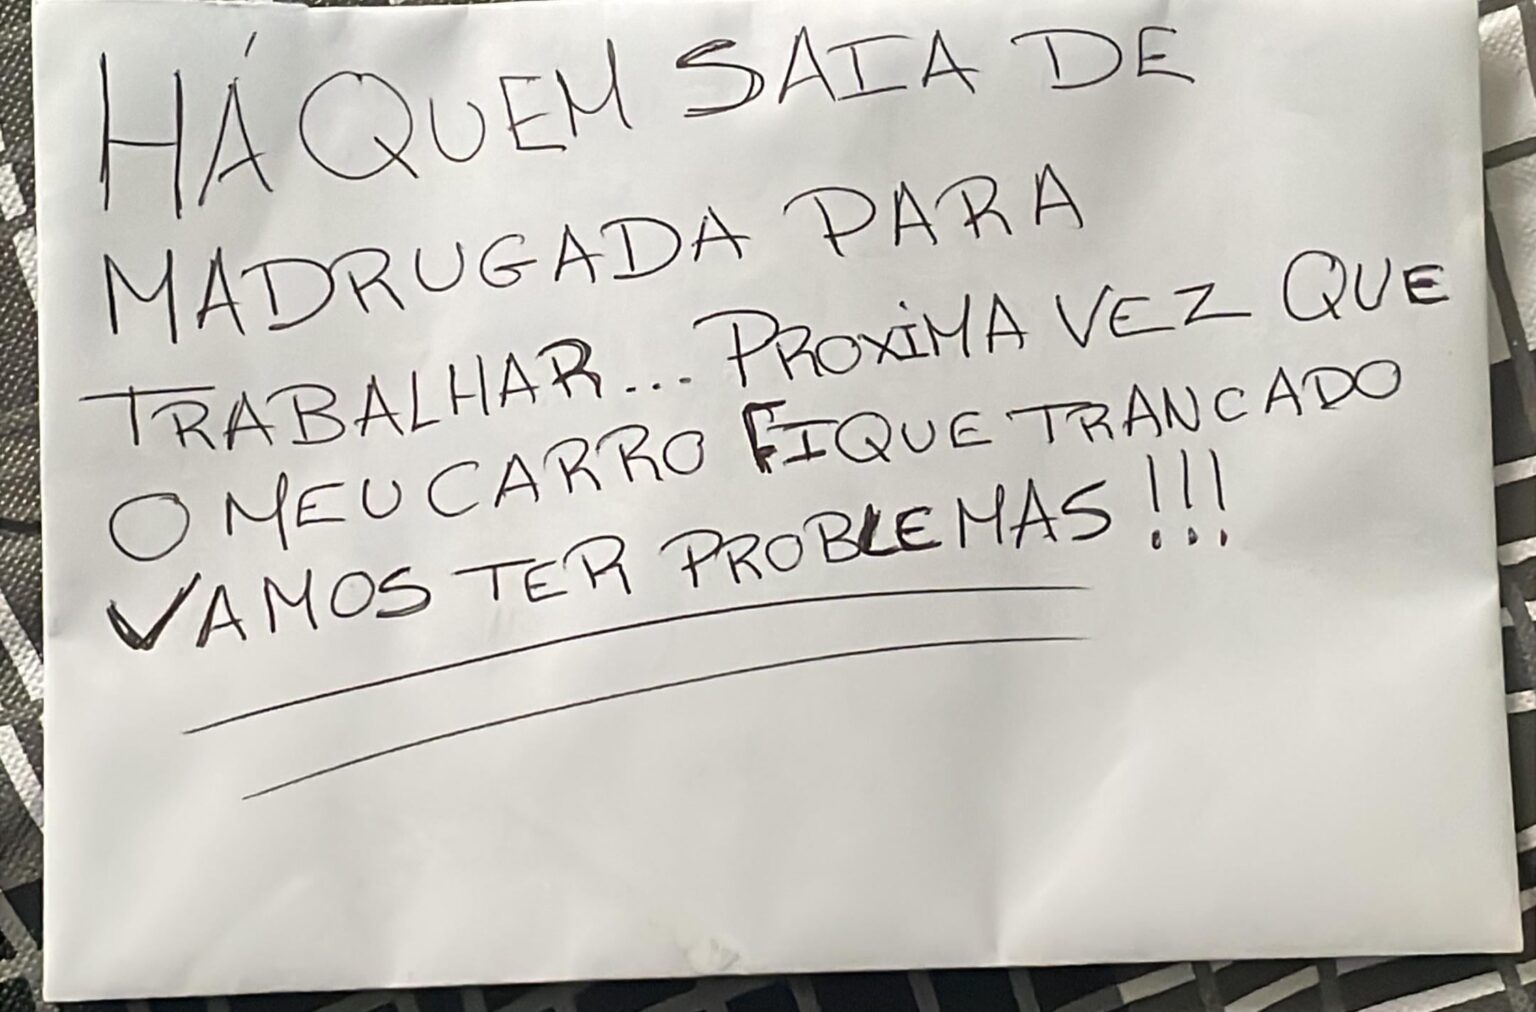 HÁ QUEM SAIA DE
MADRUGADA PARA
TRABALHAR... PROXIMA VEZ QUE
O MEU CARRO FIQUE TRANCADO
VAMOS TER PROBLEMAS!!!